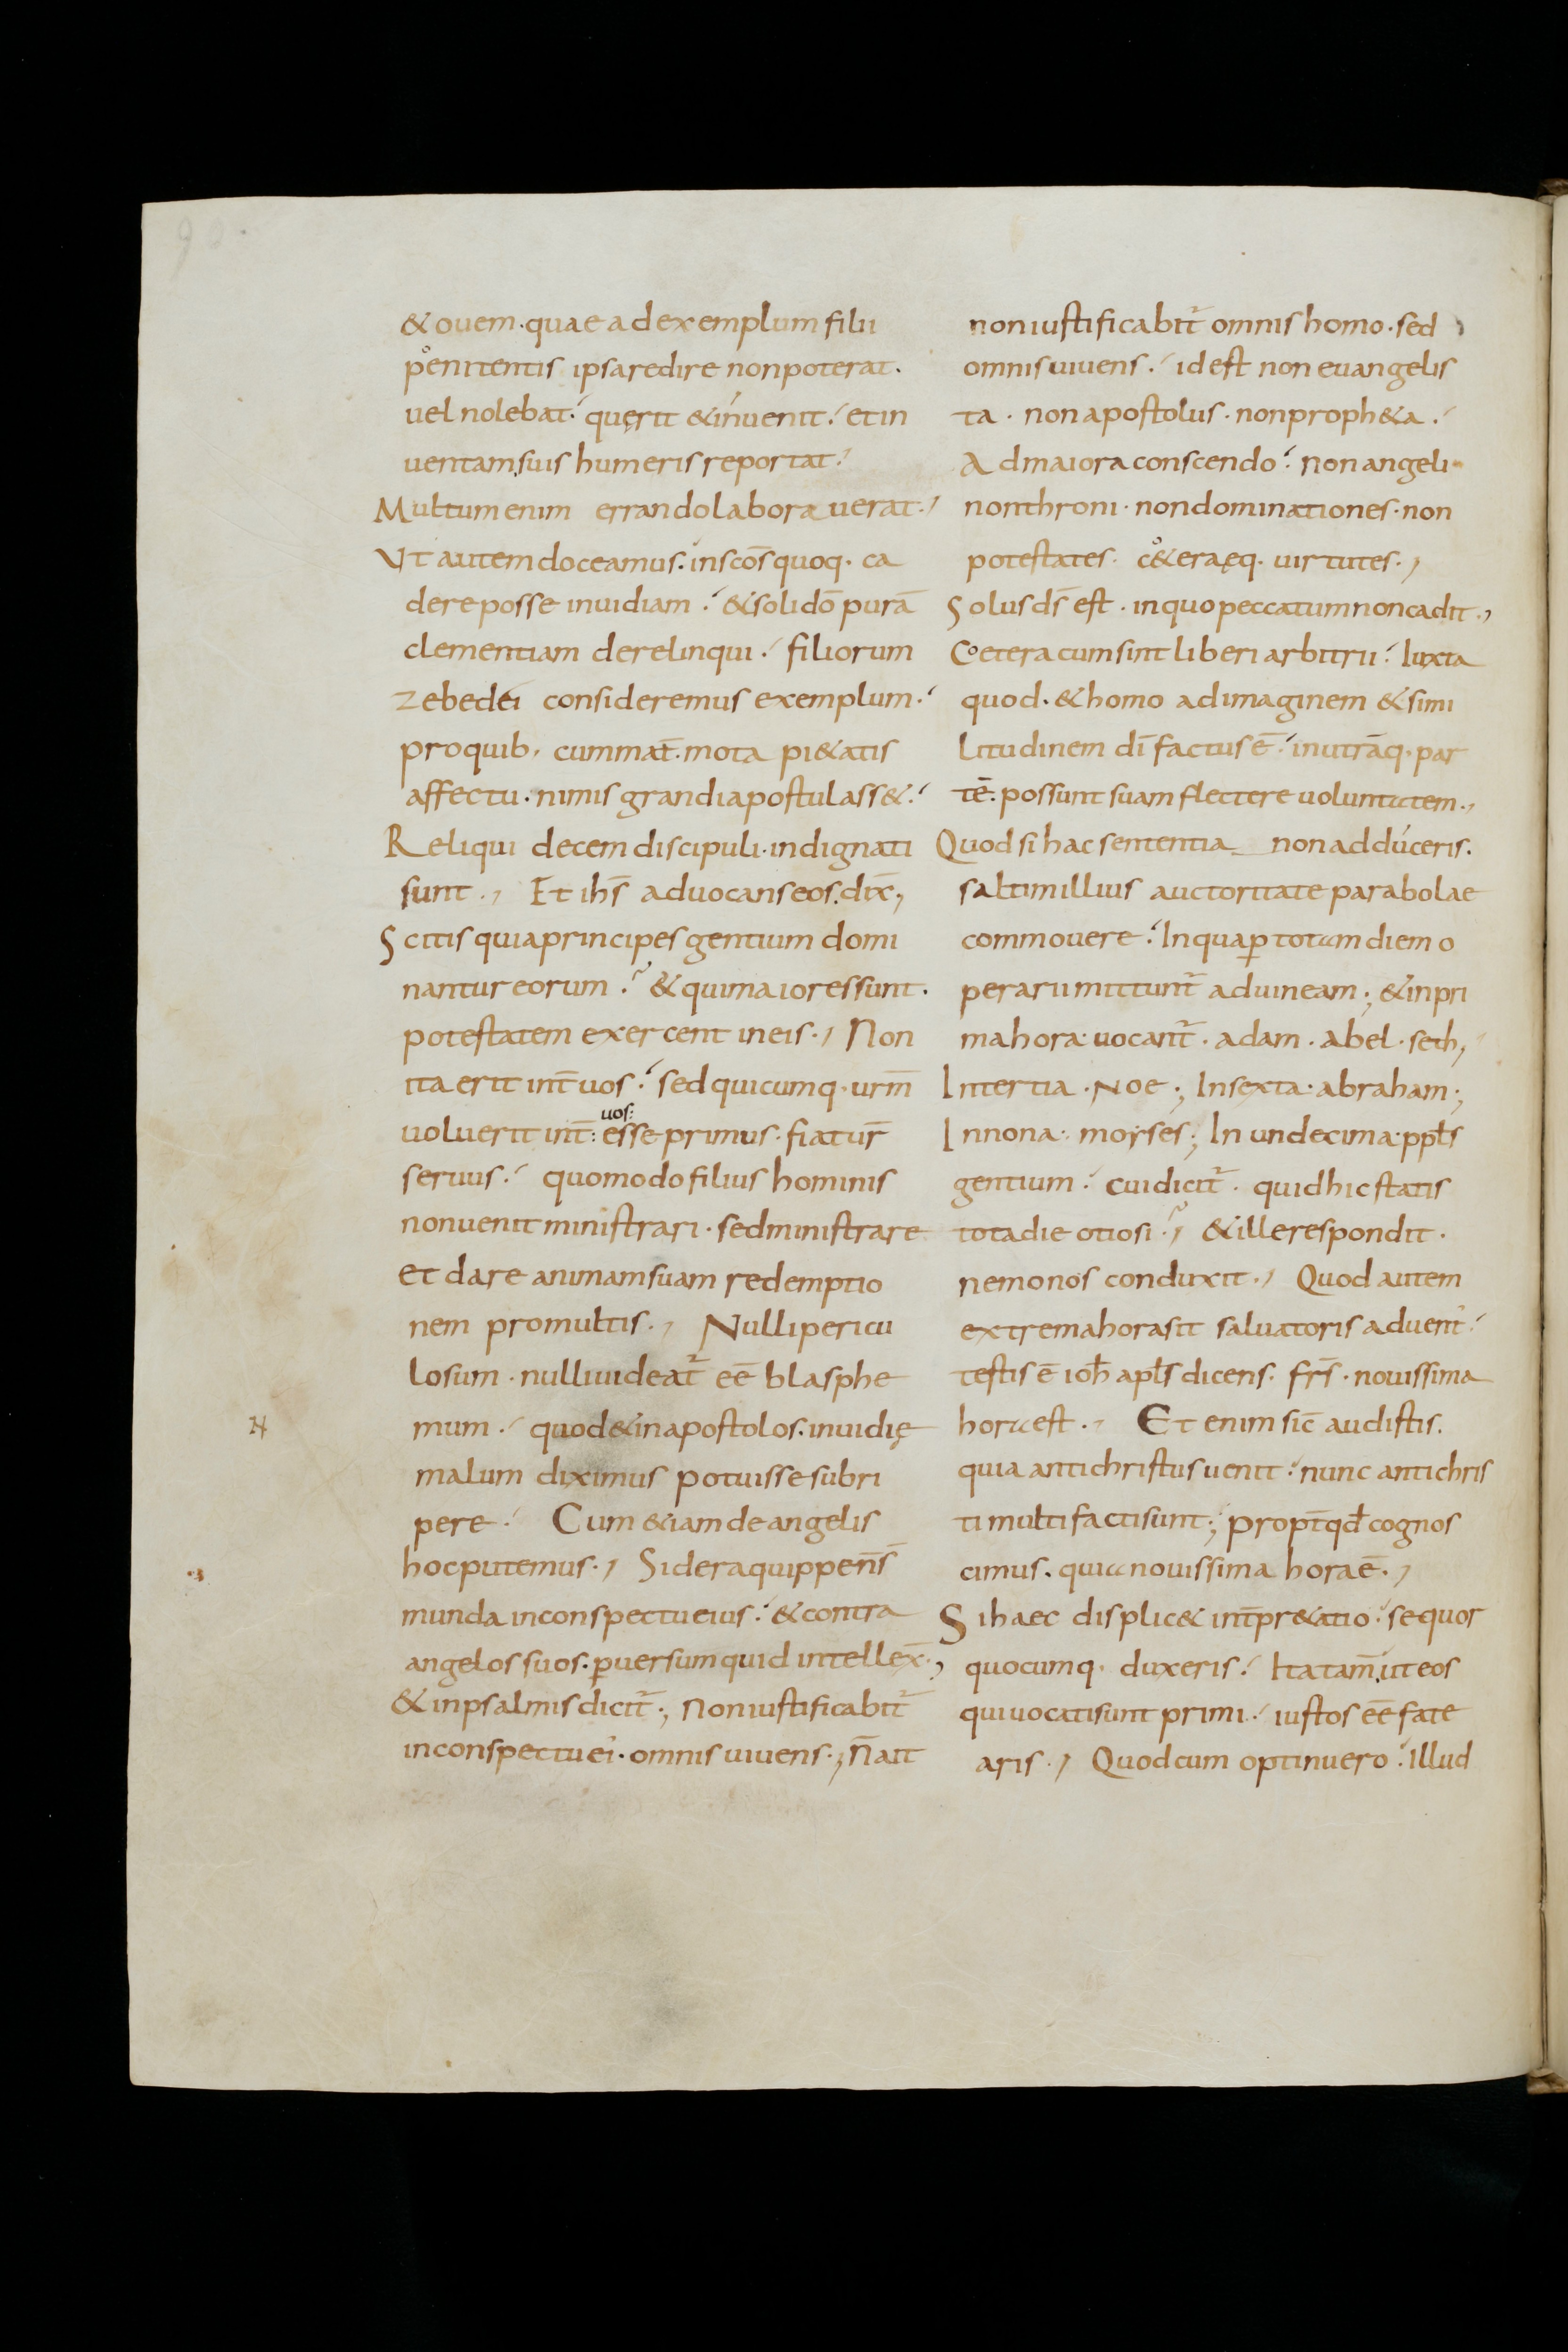 & ovem. quae ad exemplum filii
pͦenitentis ipsa redire non poterat.
uel nolebat. quęrit & inuenit. et in
uentam suis humeris reportat.
Multum enim errando laborauerat.
Ut autem doceamus. in scōs quoq. ca
dere posse inuidiam. & solidō purā
clementiam derelinqui. filiorum
zebedei consideremus exemplum.
pro quib. cum mat̄. mota pi&atis
affectu. nimis grandia postulass&.
Reliqui decem discipuli. indignati
sunt. Et ih̄s aduocans eos. dix̄;
Scitis quia principes gentium domi
nantur eorum. & qui maiores sunt.
potestatem exercent in eis. Non
ita erit int̄ uos. sed quicumq. urm̄
uoluerit int̄: uos: esse primus. fiat ur̄
seruus. quomodo filius hominis
non uenit ministrari. sed ministrare
et dare animam suam redemptio
nem pro multis. Nulli pericu
losum. nulli uideat᷑ eē blasphe
mum. quod & in apostolos. inuidię
N
malum diximus potuisse subri
pere. Cum &iam de angelis
hoc putemus. Sidera quippe n̄s̄
munda in conspectu eius. & contra
angelos suos. ꝑuersum quid intellex̄.
& in psalmis dicit᷑; Non iustificabit᷑
in conspectu ei'. omnis uiuens.; n̄ ait
non iustificabit᷑ omnis homo. sed
omnis uiuens. id est non euangelis
ta. non apostolus. non proph&a.
Ad maiora conscendo. Non angeli.
non throni. non dominationes. non
potestates. cͦ&eraęq. uirtutes.
Solus ds̄ est. in quo peccatum non cadit.
Coetera cum sint liberi arbitrii. Iuxta
quod. & homo ad imaginem & simi
litudinem dī factus ē. in utrāq. par
tē. possunt suam flectere uoluntatem.
Quod si hac sententia non addúceris.
saltim illius auctoritate parabolae
commouere. In qua ꝑ totam diem o
perarii mittunt᷑ ad uineam; & in pri
ma hora uocant᷑. adam. abel. seth;
In tertia. Noe; In sexta. abraham;
In nona. moyses; In undecima. ppl̄s
gentium. cui dicit᷑. quid hic statis
tota die otiosi. & ille respondit.
nemo nos conduxit. Quod autem
extrema hora sit saluatoris aduent'.
testis ē ioh̄ apl̄s dicens. frs̄. nouissima
hora est. Et enim sic̄ audistis.
quia antichristus uenit. nunc antichris
ti multi facti sunt; propt̄ qd̄ cognos
cimus. quia nouissima hora ē.
Si haec displic& int̄pr&atio. sequor
quocumq. duxeris. Ita tam̄. ut eos
qui uocati sunt primi. iustos eē fate
aris. Quod cum optinuero. illud